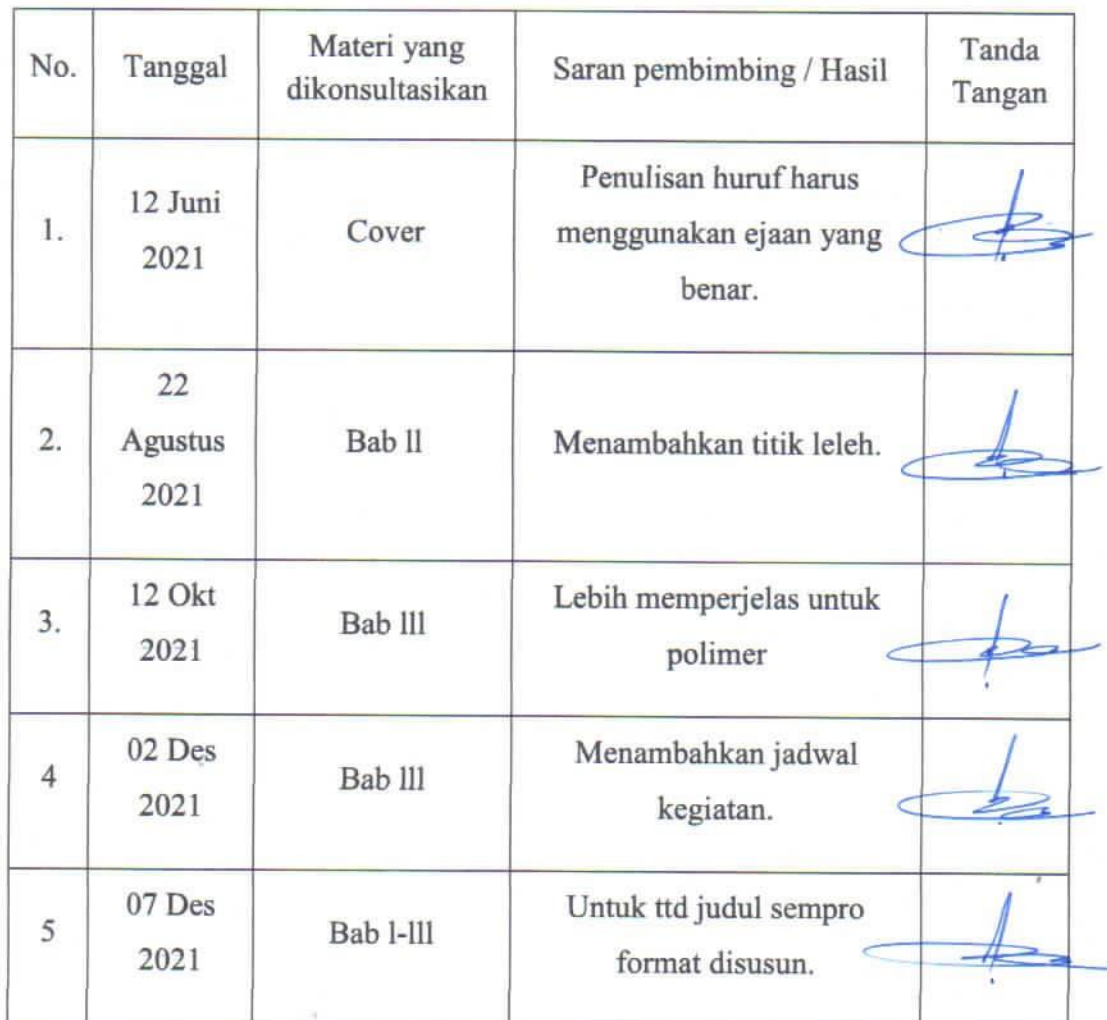 No.
Tanggal
Materi yang
dikonsultasikan
Saran pembimbing / Hasil
Tanda
Tangan
1.
12 Juni
2021
Cover
Penulisan huruf harus
menggunakan ejaan yang
benar.
2.
22
Agustus
2021
Bab ll
Menambahkan titik leleh.
3.
12 Okt
2021
Bab lll
Lebih memperjelas untuk
polimer
4
02 Des
2021
Bab lll
Menambahkan jadwal
kegiatan.
5
07 Des
2021
Bab l-lll
Untuk ttd judul sempro
format disusun.